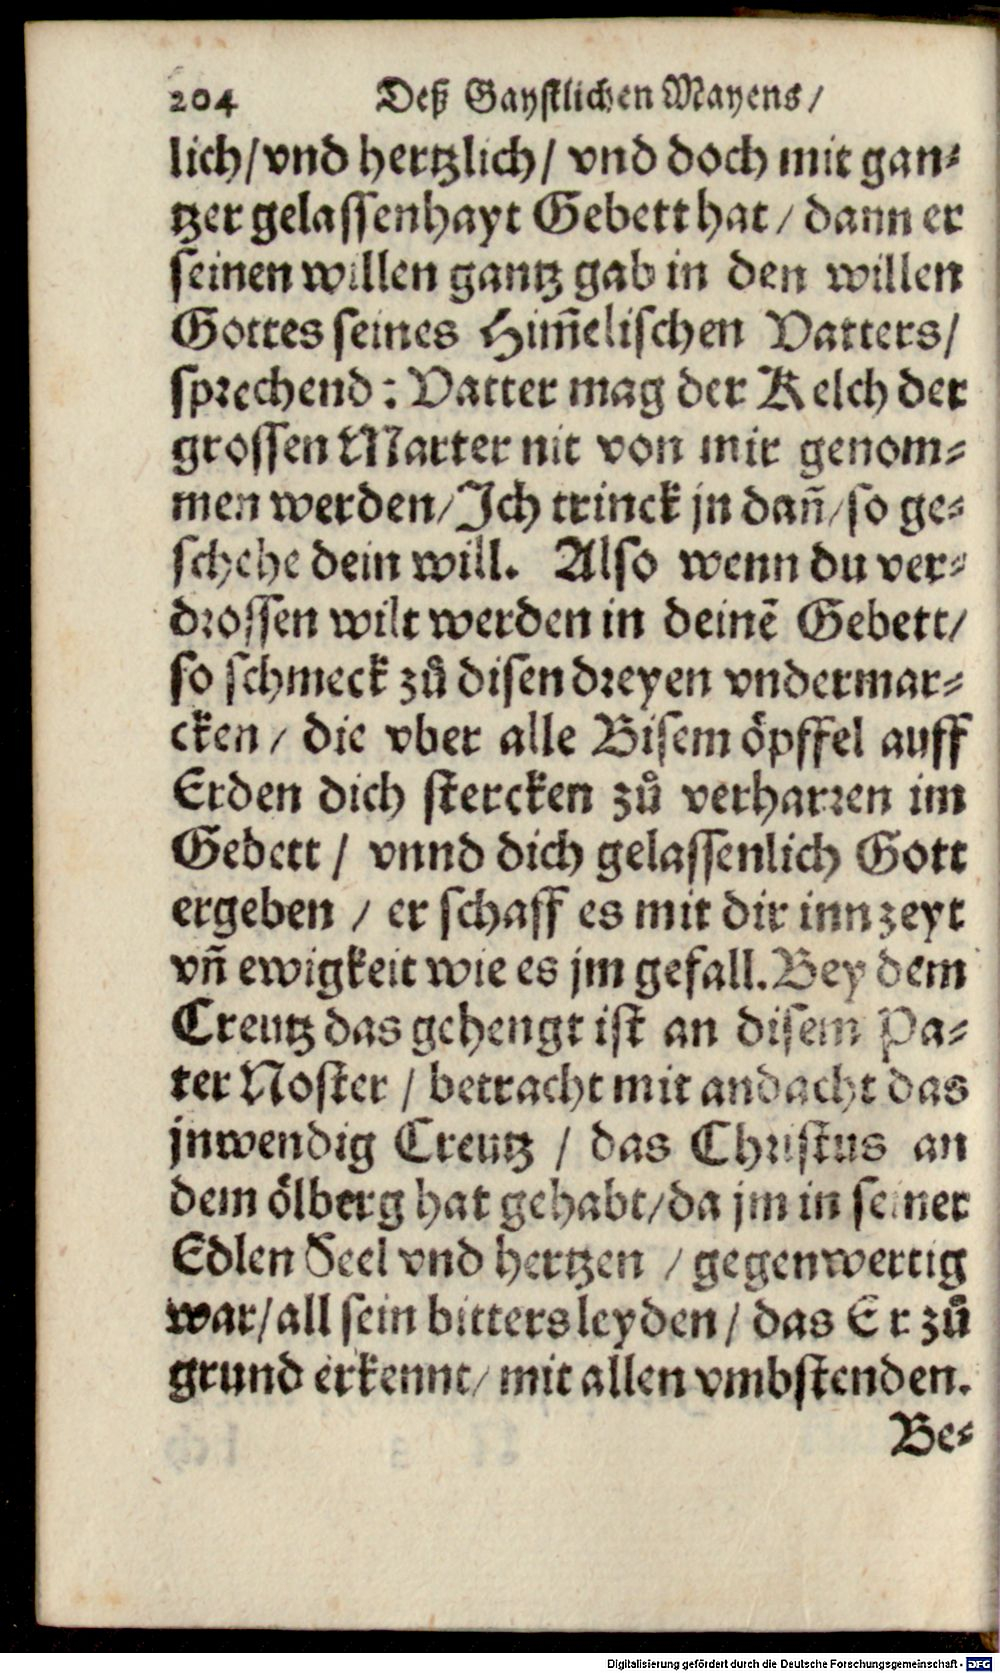 204 Deß Gaystlichen Mayens /
lich / vnd hertzlich / vnd doch mit gan⸗
tzer gelassenhayt Gebett hat / dann er
seinen willen gantz gab in den willen
Gottes seines Him̃elischen Vatters /
sprechend : Vatter mag der Kelch der
grossen Marter nit von mir genom⸗
men werden / Jch trinck jn dañ / so ge⸗
schehe dein will. Also wenn du ver⸗
drossen wilt werden in deinẽ Gebett /
so schmeck zů disen dreyen vndermar⸗
cken / die vber alle Bisem öpffel auff
Erden dich stercken zů verharren im
Gebett / vnnd dich gelassenlich Gott
ergeben / er schaff es mit dir inn zeyt
vñ ewigkeit wie es jm gefall. Bey dem
Creutz das gehengt ist an disem Pa⸗
ter Noster / betracht mit andacht das
jnwendig Creutz / das Christus an
dem ölberg hat gehabt / da jm in seiner
Edlen Seel vnd hertzen / gegenwertig
war / all sein bitters leyden / das Er zů
grund erkennt / mit allen vmbstenden.
Be⸗
Digitalisierung gefördert durch die Deutsche Forschungsgemeinschaft - DFG